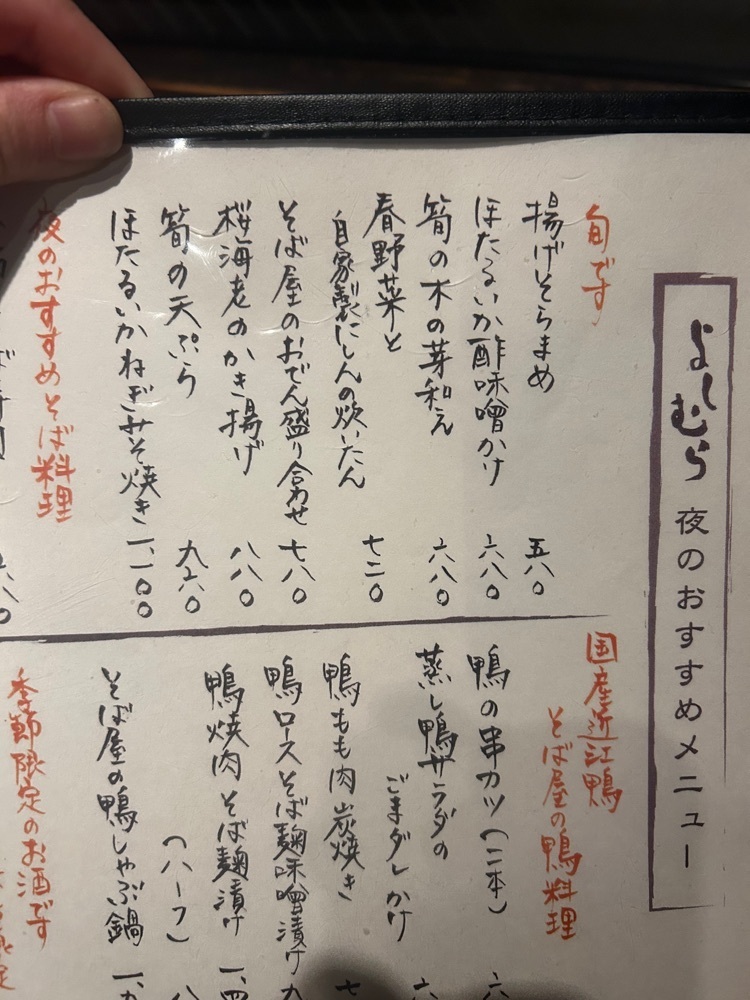 よしむら 夜のおすすめメニュー
旬です
揚げそらまめ 五八〇
ほたるいか酢味噌かけ 六八〇
筍の木の芽和え 六八〇
春野菜と
自家製にしんの炊いたん 七二〇
そば屋のおでん盛り合わせ 七八〇
桜海老のかき揚げ 八八〇
筍の天ぷら 九六〇
ほたるいかねぎみそ焼き 一、一〇〇
夜のおすすめそば料理
国産近江鴨
そば屋の鴨料理
鴨の串カツ(二本)
蒸し鴨サラダの
ごまダレかけ
鴨もも肉炭焼き
鴨ロースそば麹味噌漬け
鴨焼肉そば麹漬け
(ハーフ)
そば屋の鴨しゃぶ鍋
季節限定のお酒です